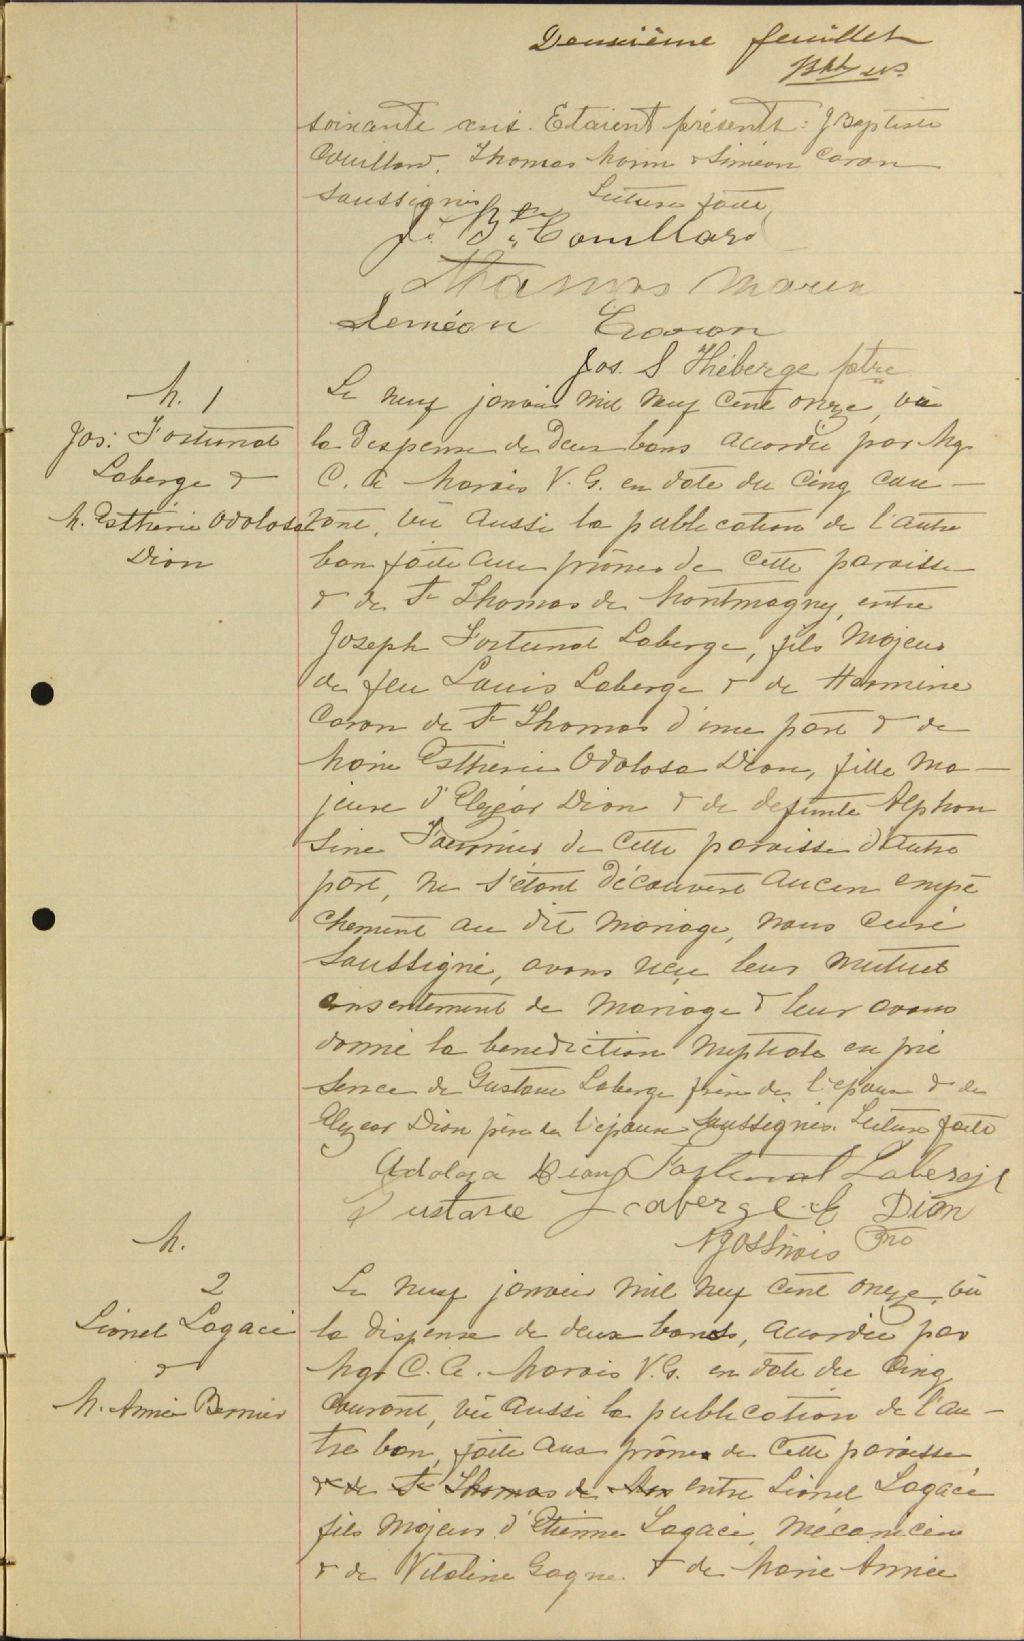 Deuxième feuillet
soixante ans. Etaient présents: J Baptiste
Couillard, Thomas Morin & Siméon Caron
soussignés Lecture faite,
J. Bte Couillard
Thomas Morin
Seméon Carron
Jos. S Théberge ptre
M. 1
Jos: Fortunat
Laberge &
M. Esthérie Odolosa
Dion
Le neuf janvier mil neuf cent onze, vu
la dispense de deux bans accordée par Mgr
C. A Marois V. G. en date du cinq cou-
rant, vu aussi la publication de l'autre
ban faite au prônes de cette paroisse
& de St Thomas de Montmagny, entre
Joseph Fortunat Laberge, fils majeur
de feu Louis Laberge & de Hermine
Caron de St Thomas d'une part & de
Marie Esthérie Odolosa Dion, fille ma-
jeure d'Elzéar Dion & de defunte Alphon
sine Fournier de cette paroisse d'autre
part, ne s'étant découvert aucun empê
chement au dit mariage, nous curé
soussigné, avons reçu leur mutuel
consentement de mariage & leur avons
donné la benediction nuptiale en pré
sence de Gustave Laberge frère de l'époux & de
Elzear Dion père de l'épouse soussignés. Lecture faite
Adolaza Dion Fortunat Laberge
Gustave Laberge E Dion
M.
2
Lionel Lagacé
&
M. Annie Bernier
Le neuf janvier mil neuf cent onze, vu
la dispense de deux bans, accordée par
Mgr C. A. Marois V. G. en date du cinq
courant, vu aussi la publication de l'au-
tre ban, faite aux prônes de cette paroisse
& de St Thomas de Mon entre Lionel Lagacé
fils majeur d'Etienne Lagacé, mécanicien
& de Vitaline Gagné & de Marie Annie